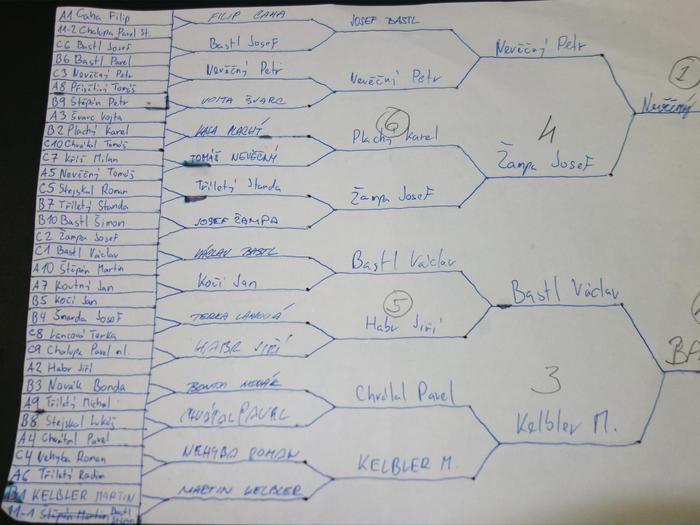 A1 Caha Filip
11-2 Chalupa Pavel St.
C6 Bastl Josef
B6 Bastl Pavel
C3 Nevěčný Petr
A8 Tomáš
B9 Štěpán Petr
A3 Švarc Vojta
B2 Plachý Karel
C10 Chvátal Tomáš
C7 Kříž Milan
A5 Nevěčný Tomáš
C5 Stejskal Roman
B7 Tříletý Standa
B10 Bastl Šimon
C2 Žampa Josef
C1 Bastl Václav
A10 Štěpán Martin
A7 Koutný Jan
B5 Kočí Jan
B4 Smarda Josef
C8 Lancová Terka
C9 Chalupa Pavel ml.
A2 Habr Jiří
B3 Novák Bonda
A9 Tříletý Michal
B8 Stejskal Lukáš
A4 Chvátal Pavel
C4 Nehyba Roman
A6 Tříletý Radim
B1 KELBLER MARTIN
11-1 Štěpán Martin Bastl
FILIP CAHA
Bastl Josef
Nevěčný Petr
VOJTA ŠVARC
KARA PLACHÝ
TOMÁŠ NEVĚČNÝ
Tříletý Standa
JOSEF ŽAMPA
VÁCLAV BASTL
Kočí Jan
TERKA LANCOVÁ
HABR JIŘÍ
BONDA NOVÁK
CHVÁTAL PAVEL
NEHYBA ROMAN
MARTIN KELBLER
JOSEF BASTL
Nevěčný Petr
6
Plachý Karel
Žampa Josef
Bastl Václav
5
Habr Jiří
Chvátal Pavel
KELBLER M.
Nevěčný Petr
4
Žampa Josef
Bastl Václav
3
Kelbler M.
1
Nevěčný
BA